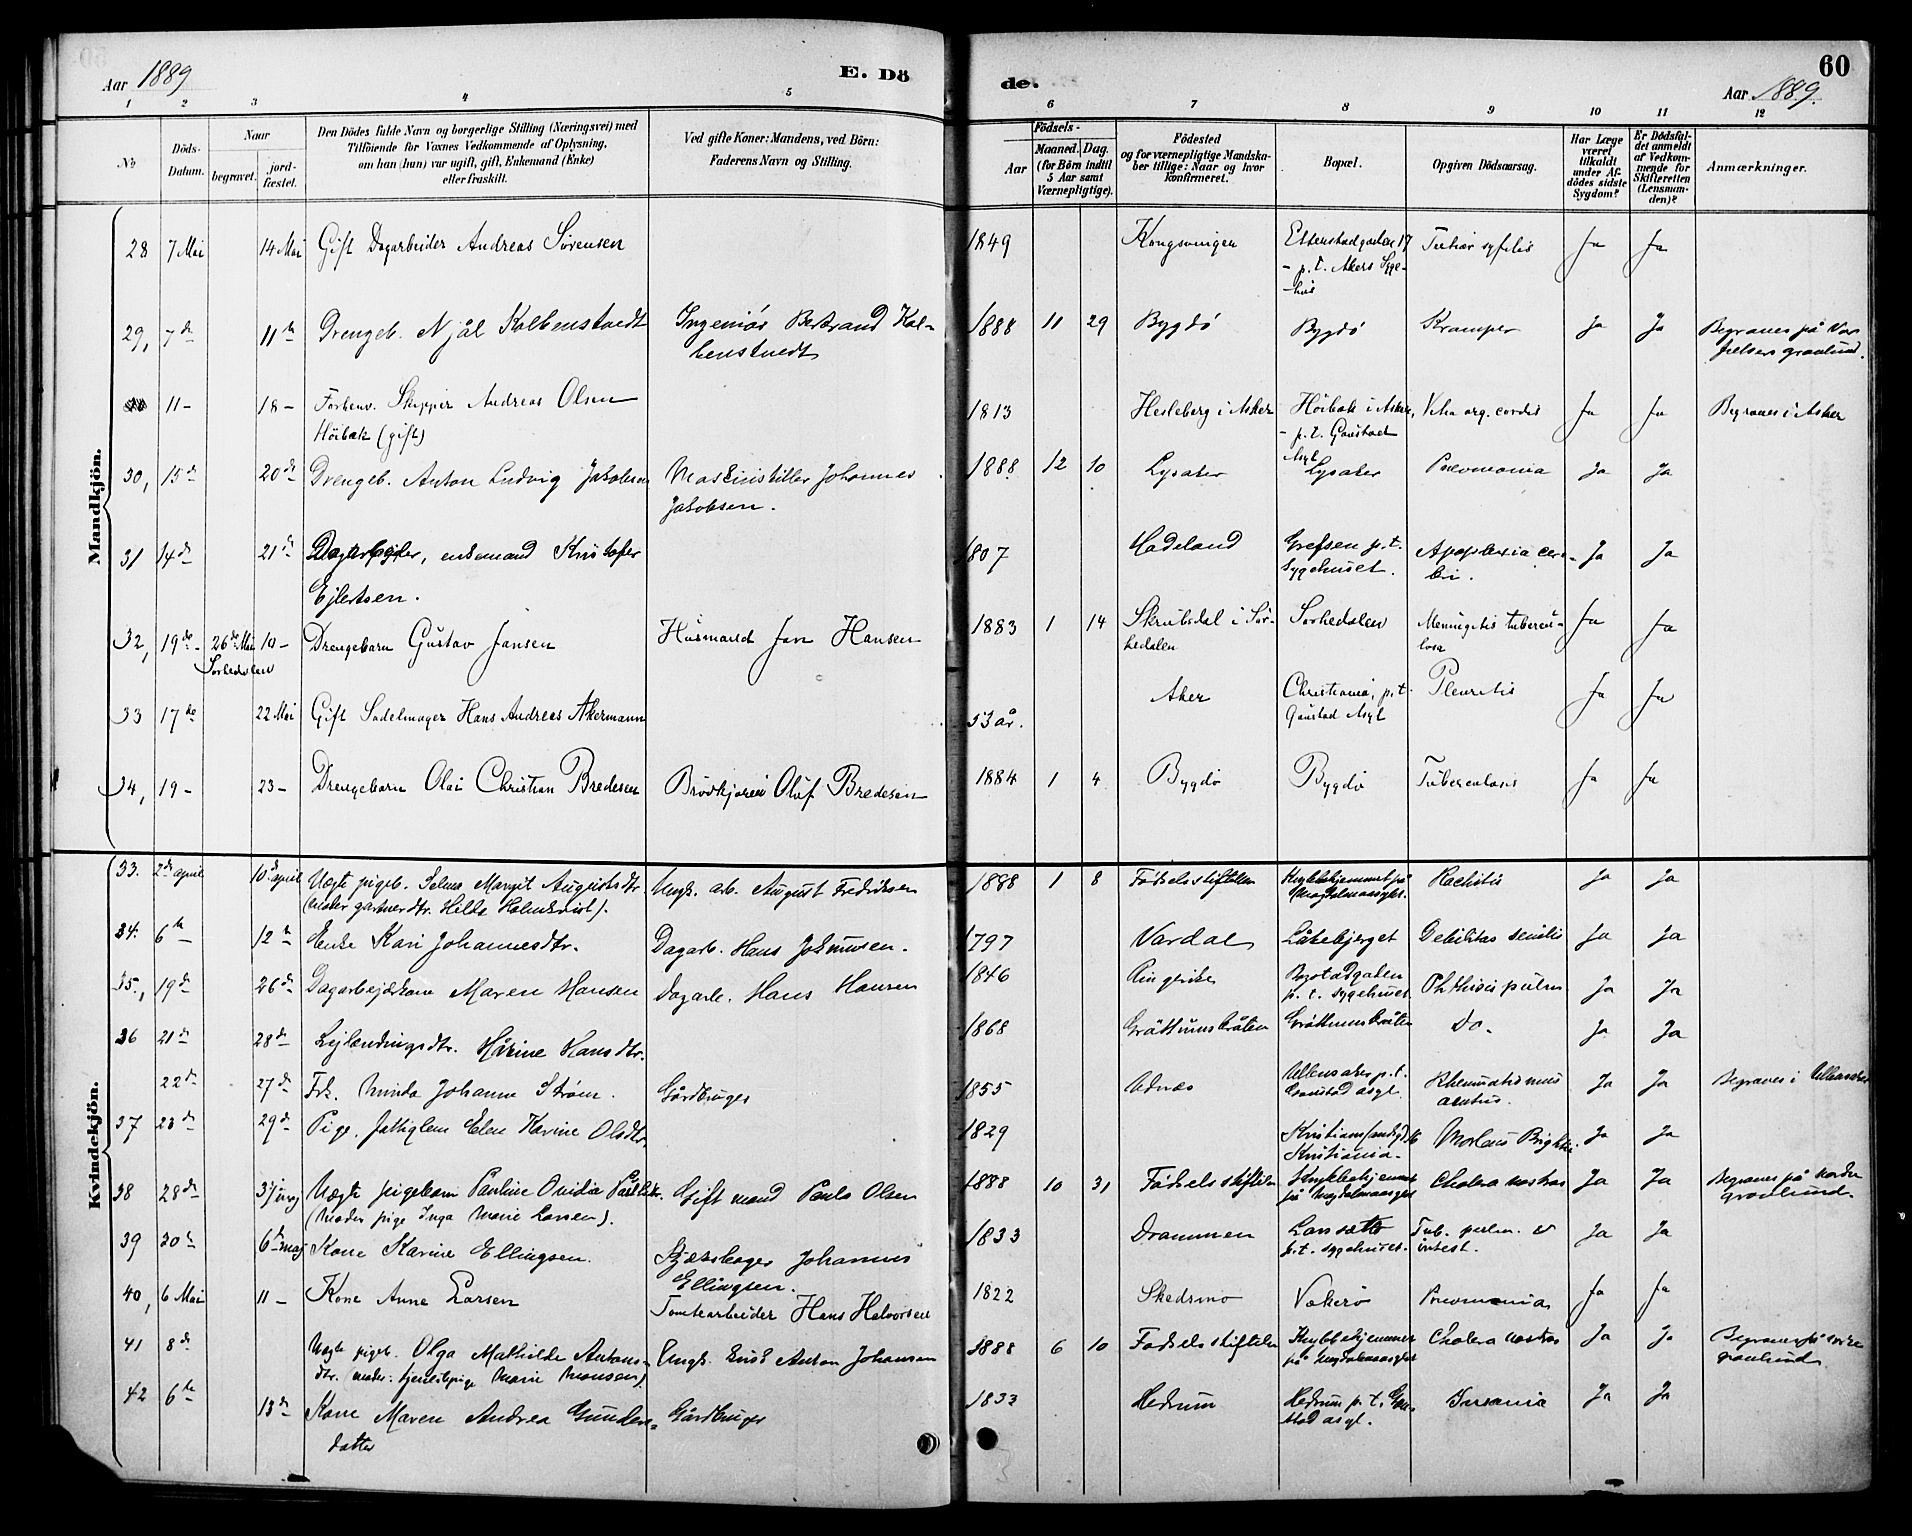 Aar 1889
E. Dö
de.
Aar 1889.
60
1 2 3 4 5 6 7 8 9 10 11 12
No
Döds-
Datum.
Naar
begravet.
jord-
fæstet.
Den Dödes fulde Navn og borgerlige Stilling (Næringsvei) med
Tilföiende for Voxnes Vedkommende af Oplysning,
om han (hun) var ugift, gift, Enkemand (Enke)
eller fraskilt.
Ved gifte Koner: Mandens, ved Börn:
Faderens Navn og Stilling.
Födsels-
Aar
Maaned. Dag.
(for Börn indtil
5 Aar samt
Værnepligtige).
Födested
og for værnepligtige Mandska-
ber tillige: Naar og hvor
konfirmeret.
Bopæl.
Opgiven Dödsaarsag.
Har Læge
været
tilkaldt
under Af-
dödes sidste
Sygdom?
Er Dödsfal-
det anmeldt
af Vedkom-
mende for
Skifteretten
(Lensman-
den)?
Anmærkninger.
Mandkjön.
28 7 Mai 14 Mai Gift Dagarbeider Andreas Sørensen 1849 Kongsvinger Etterstadgaden 17 Tertiær syfilis Ja Ja
- p. t. Akers Syge-
hus
29, 7de 11te Drengeb. Njål Kolbenstvedt Ingeniør Bertrand Kol- 1888 11 29 Bygdö Bygdö Kramper Ja Ja Begraves på Vor
benstvedt frelsers gravlund.
11 - 18 - Forhenv. Skipper Andreas Olsen 1813 Hesleberg i Asker Höibak i Asker, Vitia org. cordis Ja Ja Begraves i Asker
Höibak (gift) - p. t. Gaustad
Asyl
30, 15de 20de Drengeb. Anton Ludvig Jakobsen Maskinstiller Johannes 1888 12 10 Lysaker Lysaker Pneumonia Ja Ja
Jakobsen.
31 14de 21de enkemand Kristofer 1807 Hadeland Grefsen p. t. Apoplexia cere- Ja Ja
Ejlertsen. sygehuset. bri.
32, 19de - 26de Mai 10 - Drengebarn Gustav Jansen Husmand Jan Hansen 1883 1 14 Skrubdal i Sör- Sørkedalen Meningitis tubercu- Ja Ja
Sørkedalen kedalen losa
33 17de 22 Mai Gift Sadelmager Hans Andreas Akermann 53 år. Aker Christiania, p. t. Pleuritis Ja Ja
Gaustad Asyl
34, 19 - 23 - Drengebarn Olai Christian Bredesen Brødkjører Oluf Bredesen 1884 1 4 Bygdø Bygdø Tuberculosis Ja Ja
Kvindekjön.
33. 2de april 10de april Uægte pigeb. Selma Margit Augustsdtr. Ungk. arb. August Fredriksen 1888 1 8 Födselsstiftelsen Krybbehjemmet på Rachitis Ja Ja
(moder gartnerdtr. Hilda Holmkvist). Magdalenaasyl.
34. 6te 12te Enke Kari Johannesdtr. Dagarb. Hans 1797 Vardal Låkebjerget Debilitas senilis Ja Ja
35, 19de 26de Dagarbejderkone Maren Hansen Dagarb. Hans Hansen 1846 Ringerike p. t. sygehuset Phthisis pulm Ja Ja
36 21de 28de Lejlændingsdtr. Hårine Hansdtr. 1868 Gråttumsbråten Gråttumsbråten Do. Ja Ja
22de 27de Frk. Minda Johanne Strøm. Gårdbruger 1855 Udnæs Ullensaker p. t. Rheumatismus Ja Ja Begraves i Ullensaker
Gaustad asyl. acutus.
37 23de 29de Pige, fattiglem Elen Karine Olsdtr. 1829 Morbus Brightii Ja Ja
Kristiania.
38 28de 3/maj Uægte pigebarn Pauline Ovidia Gift mand Paulo Olsen 1888 10 31 Födselsstiftelsen Krybbehjemmet Cholera nostras Ja Ja Begraves på nordre
(moder pige Inga Marie Larsen). på Magdalenaasylet gravlund.
39 30te 6te maj Kone Karine Ellingsen. Johannes 1833 Drammen p. t. sygehuset. Tub. pulm. & Ja Ja
Ellingsen. intest.
40, 6 Mai 11 - Kone Anne Larsen Tomtearbeider Hans Halvorsen 1822 Skedsmo Vækerø Pneumonia Ja Ja
41 8de Uægte pigeb. Olga Mathilde Antons- Ungk. kusk Anton Johansen 1888 6 10 Födselsstiftelsen Krybbehjemmet Cholera nostras Ja Ja Begraves på nordre
dtr. (moder: tjenestepige Marie Monsen) på Magdalenaasylet gravlund.
42 6te 13de Kone Maren Andrea Gunders- Gårdbruger 1833 Hedrum Hedrum p. t. Gau- Insania Ja Ja
datter stad asyl.